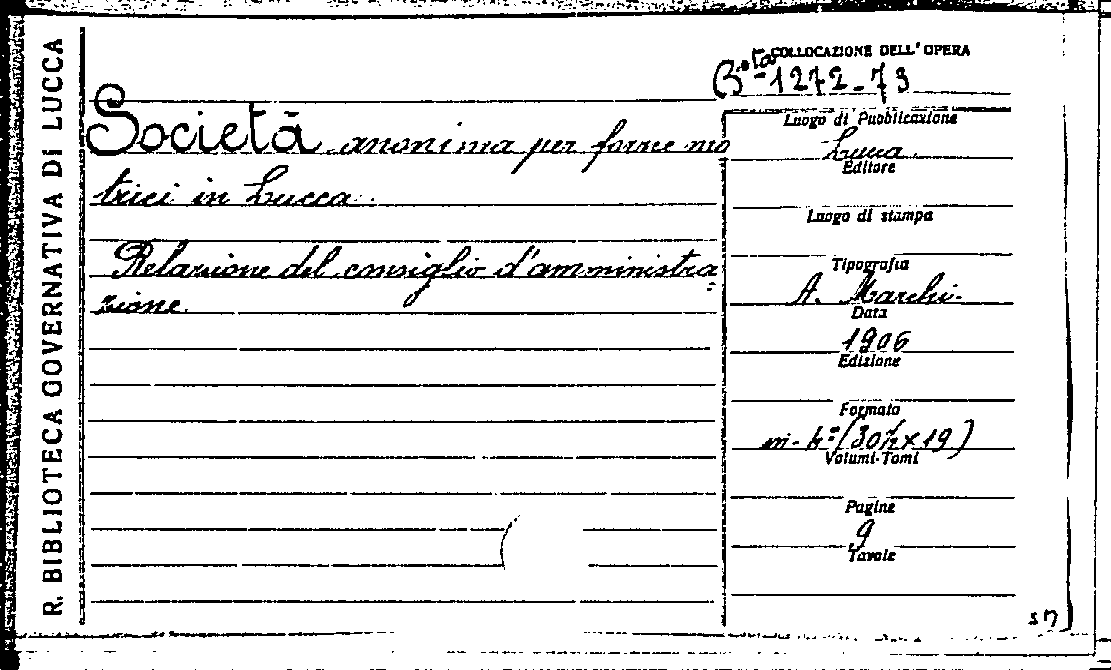 R. BIBLIOTECA GOVERNATIVA DI LUCCA
COLLOCAZIONE DELL' OPERA
B.ta 1272-73
Società anonima per forze mo
trici in Lucca.
Relazione del consiglio d'amministra=
zione.
Luogo di Pubblicazione
Lucca.
Editore
Luogo di stampa
Tipografia
A. Marchi.
Data
1906
Edizione
Formato
in-4º (30½ x 19)
Volumi-Tomi
Pagine
9
Tavole